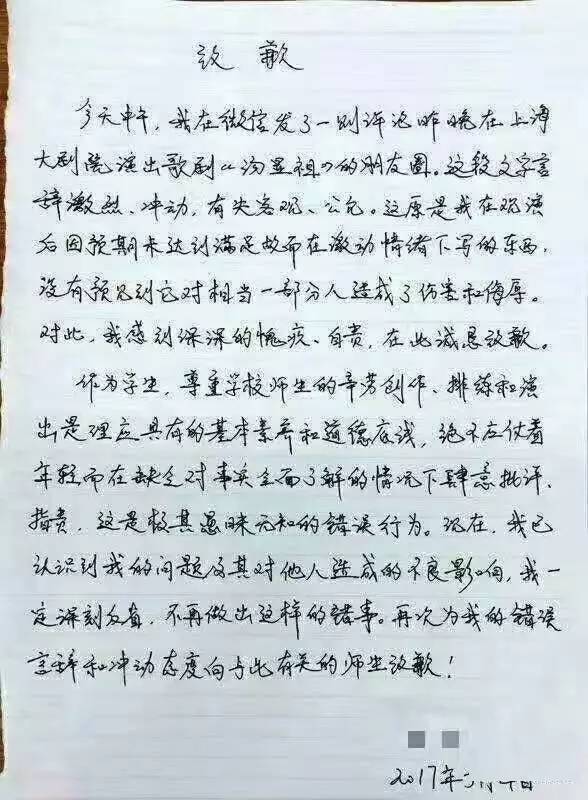 致歉
今天中午，我在微信发了一则评论昨晚在上海
大剧院演出歌剧《汤显祖》的朋友圈。这段文字言
辞激烈、冲动，有失客观、公允。这原是我在观演
后因预期未达到满足故而在激动情绪下写的东西，
没有预见到它对相当一部分人造成了伤害和侮辱。
对此，我感到深深的愧疚、自责，在此诚恳致歉。
作为学生，尊重学校师生的辛劳创作、排练和演
出是理应具有的基本素养和道德底线，绝不应仗着
年轻而在缺乏对事实全面了解的情况下肆意批评、
指责，这是极其愚昧无知的错误行为。现在，我已
认识到我的问题及其对他人造成的不良影响，我一
定深刻反省，不再做出这样的错事。再次为我的错误
言辞和冲动态度向与此有关的师生致歉！
2017年